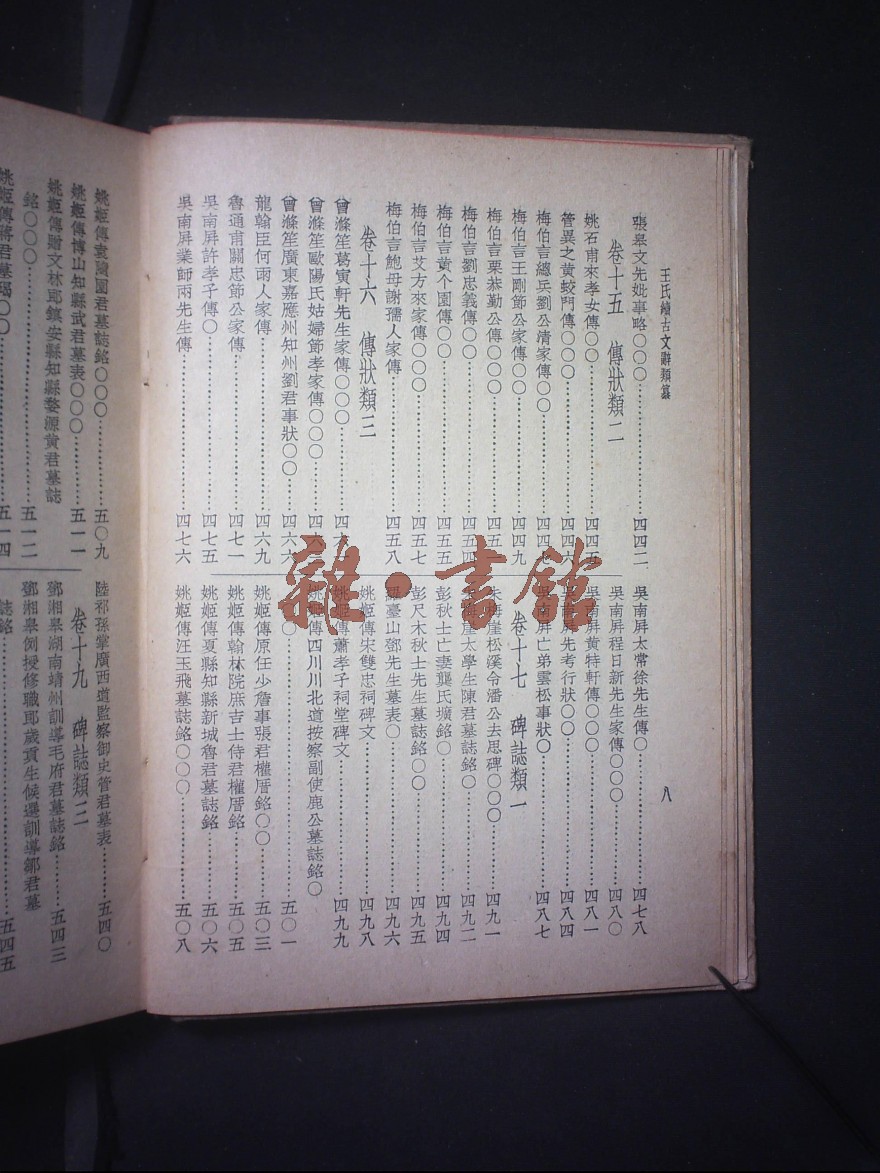 王氏續古文辭類纂
八
張皋文先妣事略〇〇〇……四四二
卷十五 傳狀類二
姚石甫來孝女傳〇〇……四四五
管異之黃蛟門傳〇〇〇……四四六
梅伯言總兵劉公清家傳〇〇……四四七
梅伯言王剛節公家傳〇〇〇……四四九
梅伯言栗恭勤公傳〇〇〇……四五
梅伯言劉忠義傳〇〇……四五四
梅伯言黃个園傳〇〇……四五五
梅伯言艾方來家傳〇〇〇……四五七
梅伯言鮑母謝孺人家傳……四五八
卷十六 傳狀類三
曾滌笙葛寅軒先生家傳〇〇〇……四六
曾滌笙歐陽氏姑婦節孝家傳〇〇〇……四六
曾滌笙廣東嘉應州知州劉君事狀〇〇……四六六
龍翰臣何雨人家傳……四六九
魯通甫關忠節公家傳……四七一
吳南屏許孝子傳〇……四七五
吳南屏業師兩先生傳……四七六
吳南屏太常徐先生傳〇……四七八
吳南屏程日新先生家傳〇〇〇……四八〇
吳南屏黃特軒傳〇〇〇……四八一
吳南屏先考行狀〇〇……四八四
吳南屏亡弟雲松事狀〇……四八七
卷十七 碑誌類一
朱梅崖松溪令潘公去思碑〇〇〇……四九一
朱梅崖太學生陳君墓誌銘〇……四九二
彭秋士亡妻龔氏壙銘〇〇……四九四
彭尺木秋士先生墓誌銘〇〇……四九五
羅臺山鄧先生墓表〇……四九六
姚姬傳宋雙忠祠碑文……四九八
姚姬傳蕭孝子祠堂碑文……四九九
姚姬傳四川川北道按察副使鹿公墓誌銘〇
〇……五〇一
姚姬傳原任少詹事張君權厝銘〇〇……五〇三
姚姬傳翰林院庶吉士侍君權厝銘……五〇五
姚姬傳夏縣知縣新城魯君墓誌銘……五〇六
姚姬傳汪玉飛墓誌銘〇〇〇……五〇八
姚姬傳袁隨園君墓誌銘〇〇〇……五〇九
姚姬傳博山知縣武君墓表〇〇〇……五一一
姚姬傳贈文林郎鎮安縣知縣婺源黃君墓誌
銘〇〇〇……五一二
姚姬傳蔣君墓碣〇〇……五一四
陸祁孫掌廣西道監察御史管君墓表……五四〇
卷十九 碑誌類三
鄧湘皋湖南靖州訓導毛府君墓誌銘……五四三
鄧湘皋例授修職郎歲貢生候選訓導鄒君墓
誌銘……五四五
雜·書館